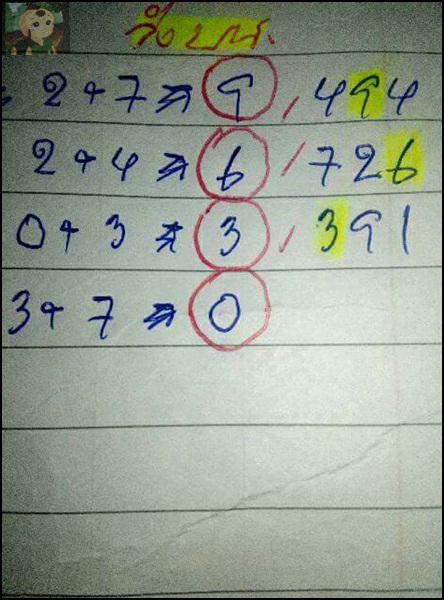 วิ่งบน.
2 + 7 ⇒ 9 / 494
2 + 4 ⇒ 6 / 726
0 + 3 ⇒ 3 / 391
3 + 7 ⇒ 0